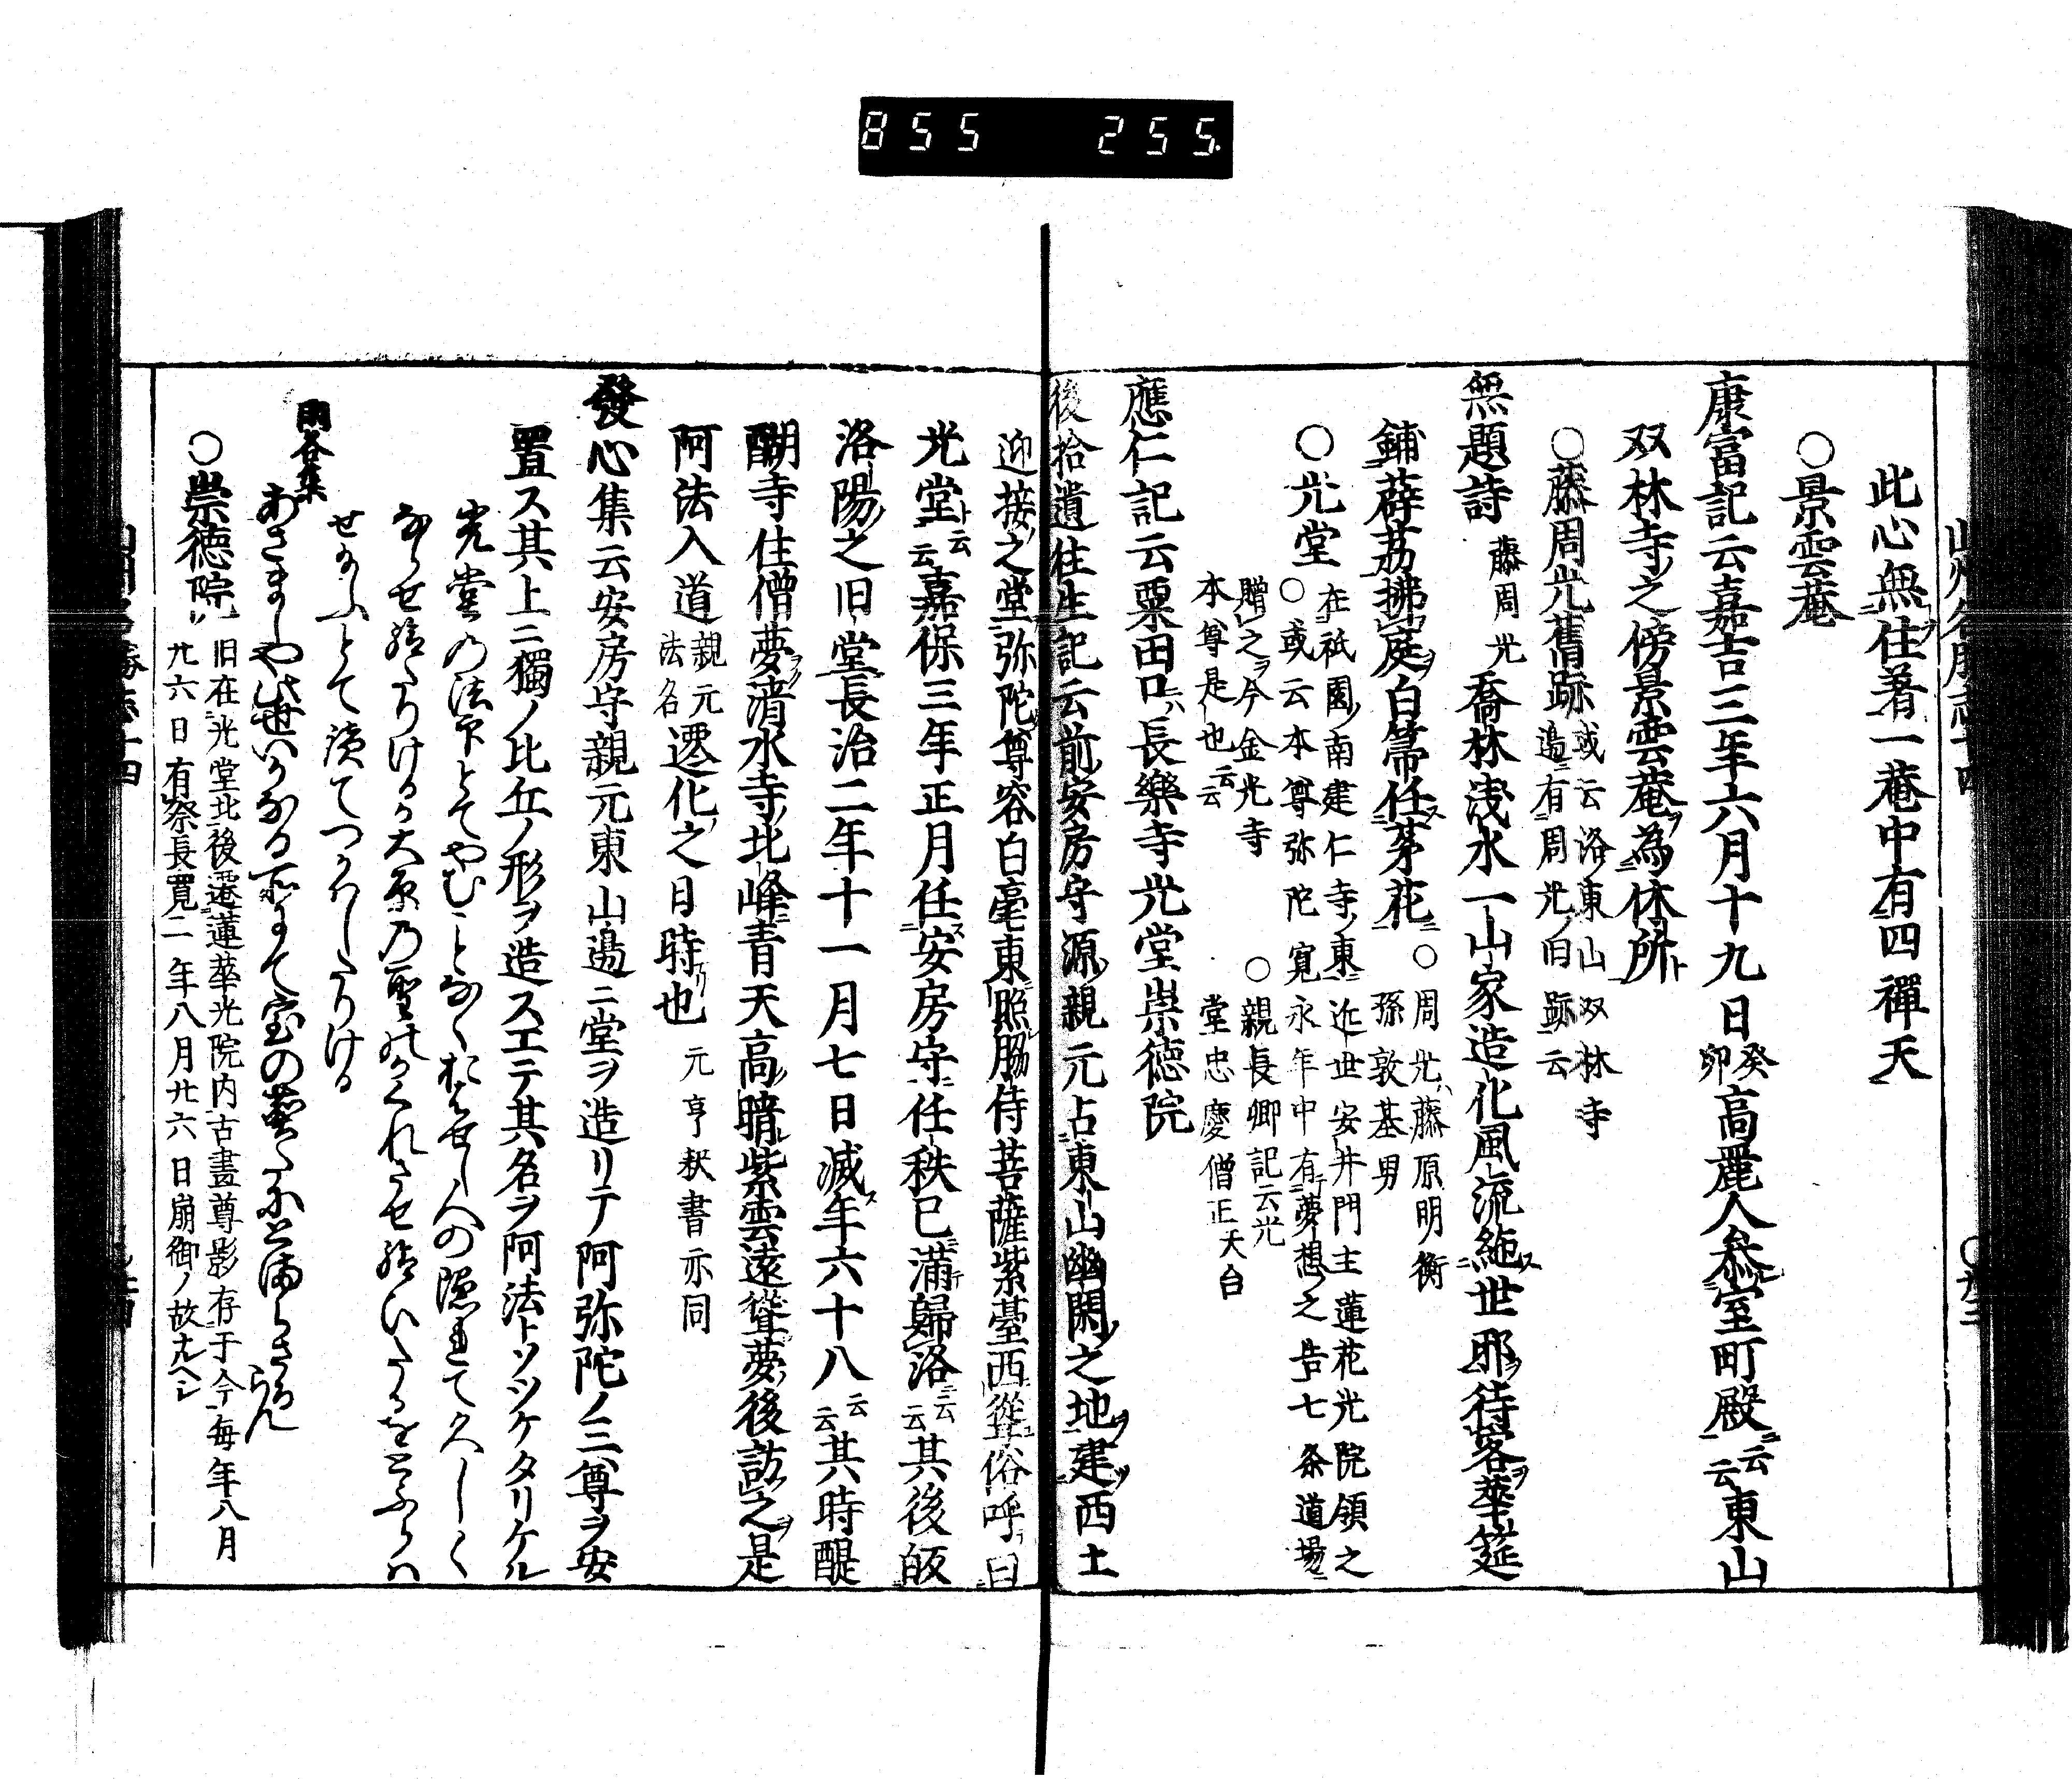 855 255.
此心無住著一菴中有四禪天
○景雲菴
康富記云嘉吉三年六月十九日癸卯高麗人参室町殿ニ云云東山
双林寺之傍景雲菴ヲ為休所ト
○藤周光舊跡 或云洛東山双林寺
邉有周光ノ旧跡云
無題詩 藤周光 喬林浅水一山家造化風流絁世邪待客華筵
鋪薜茘拂庭白箒任茅花 ○周光ハ藤原明衡
孫敦基男
○光堂 在祇園ノ南建仁寺ノ東近世安井門主蓮花光院領之
○或云本尊弥陀寛永年中有夢想之告七条道場
贈之今金光寺
本尊是也云云
○親長卿記云光
堂忠慶僧正天台
應仁記云粟田口ハ長樂寺光堂崇徳院
後拾遺往生記云前安房守源親元占東山幽閑之地建西土
迎接之堂弥陀尊容白毫東照脇侍菩薩紫臺西聳俗呼曰
光堂ト云云嘉保三年正月任安房守任秩已満歸洛云云其後皈
洛陽之旧堂長治二年十一月七日滅年六十八云云其時醍
醐寺住僧夢清水寺北峰青天高暗紫雲遠聳夢後訪之是
阿法入道親元法名遷化之日時也 元亨釈書亦同
發心集云安房守親元東山邉ニ堂ヲ造リテ阿弥陀ノ三尊ヲ安
置ス其上ニ獨ノ比丘ノ形ヲ造スエテ其名ヲ阿法トソツケタリケル
光堂の法印とてやむことなくおはせし人の隠れて久しく
ならせ給たりけるか大原乃聖
せなふとて讀てつかはしたりける
明各集
あさましや此世いかなる
らん
○崇徳院 旧在光堂北後遷蓮華光院内古畫尊影存于今毎年八月
廾六日有祭長寛二年八月廾六日崩御ノ故ナルヘシ